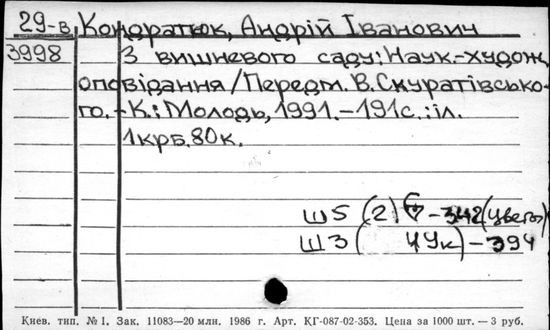 29-в Кондратюк, Андрій Іванович
3998 З вишневого саду: Наук.-худож.
оповідання/Передм. В. Скуратівсько-
го.-К.: Молодь, 1991.-191с.:іл.
1крб.80к.
Ш5 (2) -342 (цветы)
Ш3 ( 4Ук) -394
Киев. тип. № 1. Зак. 11083—20 млн. 1986 г. Арт. КГ-087-02-353. Цена за 1000 шт. — 3 руб.